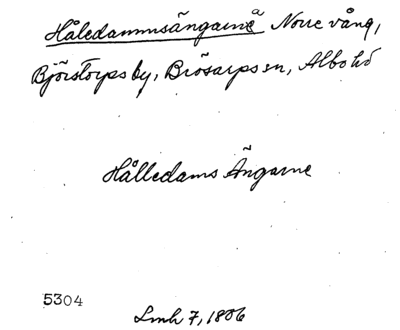 Håledammsängarne å Norre vång,
Björstorps by, Brösarps sn, Albo hd
Hålledams Ängarne
5304
Lmh 7, 1806